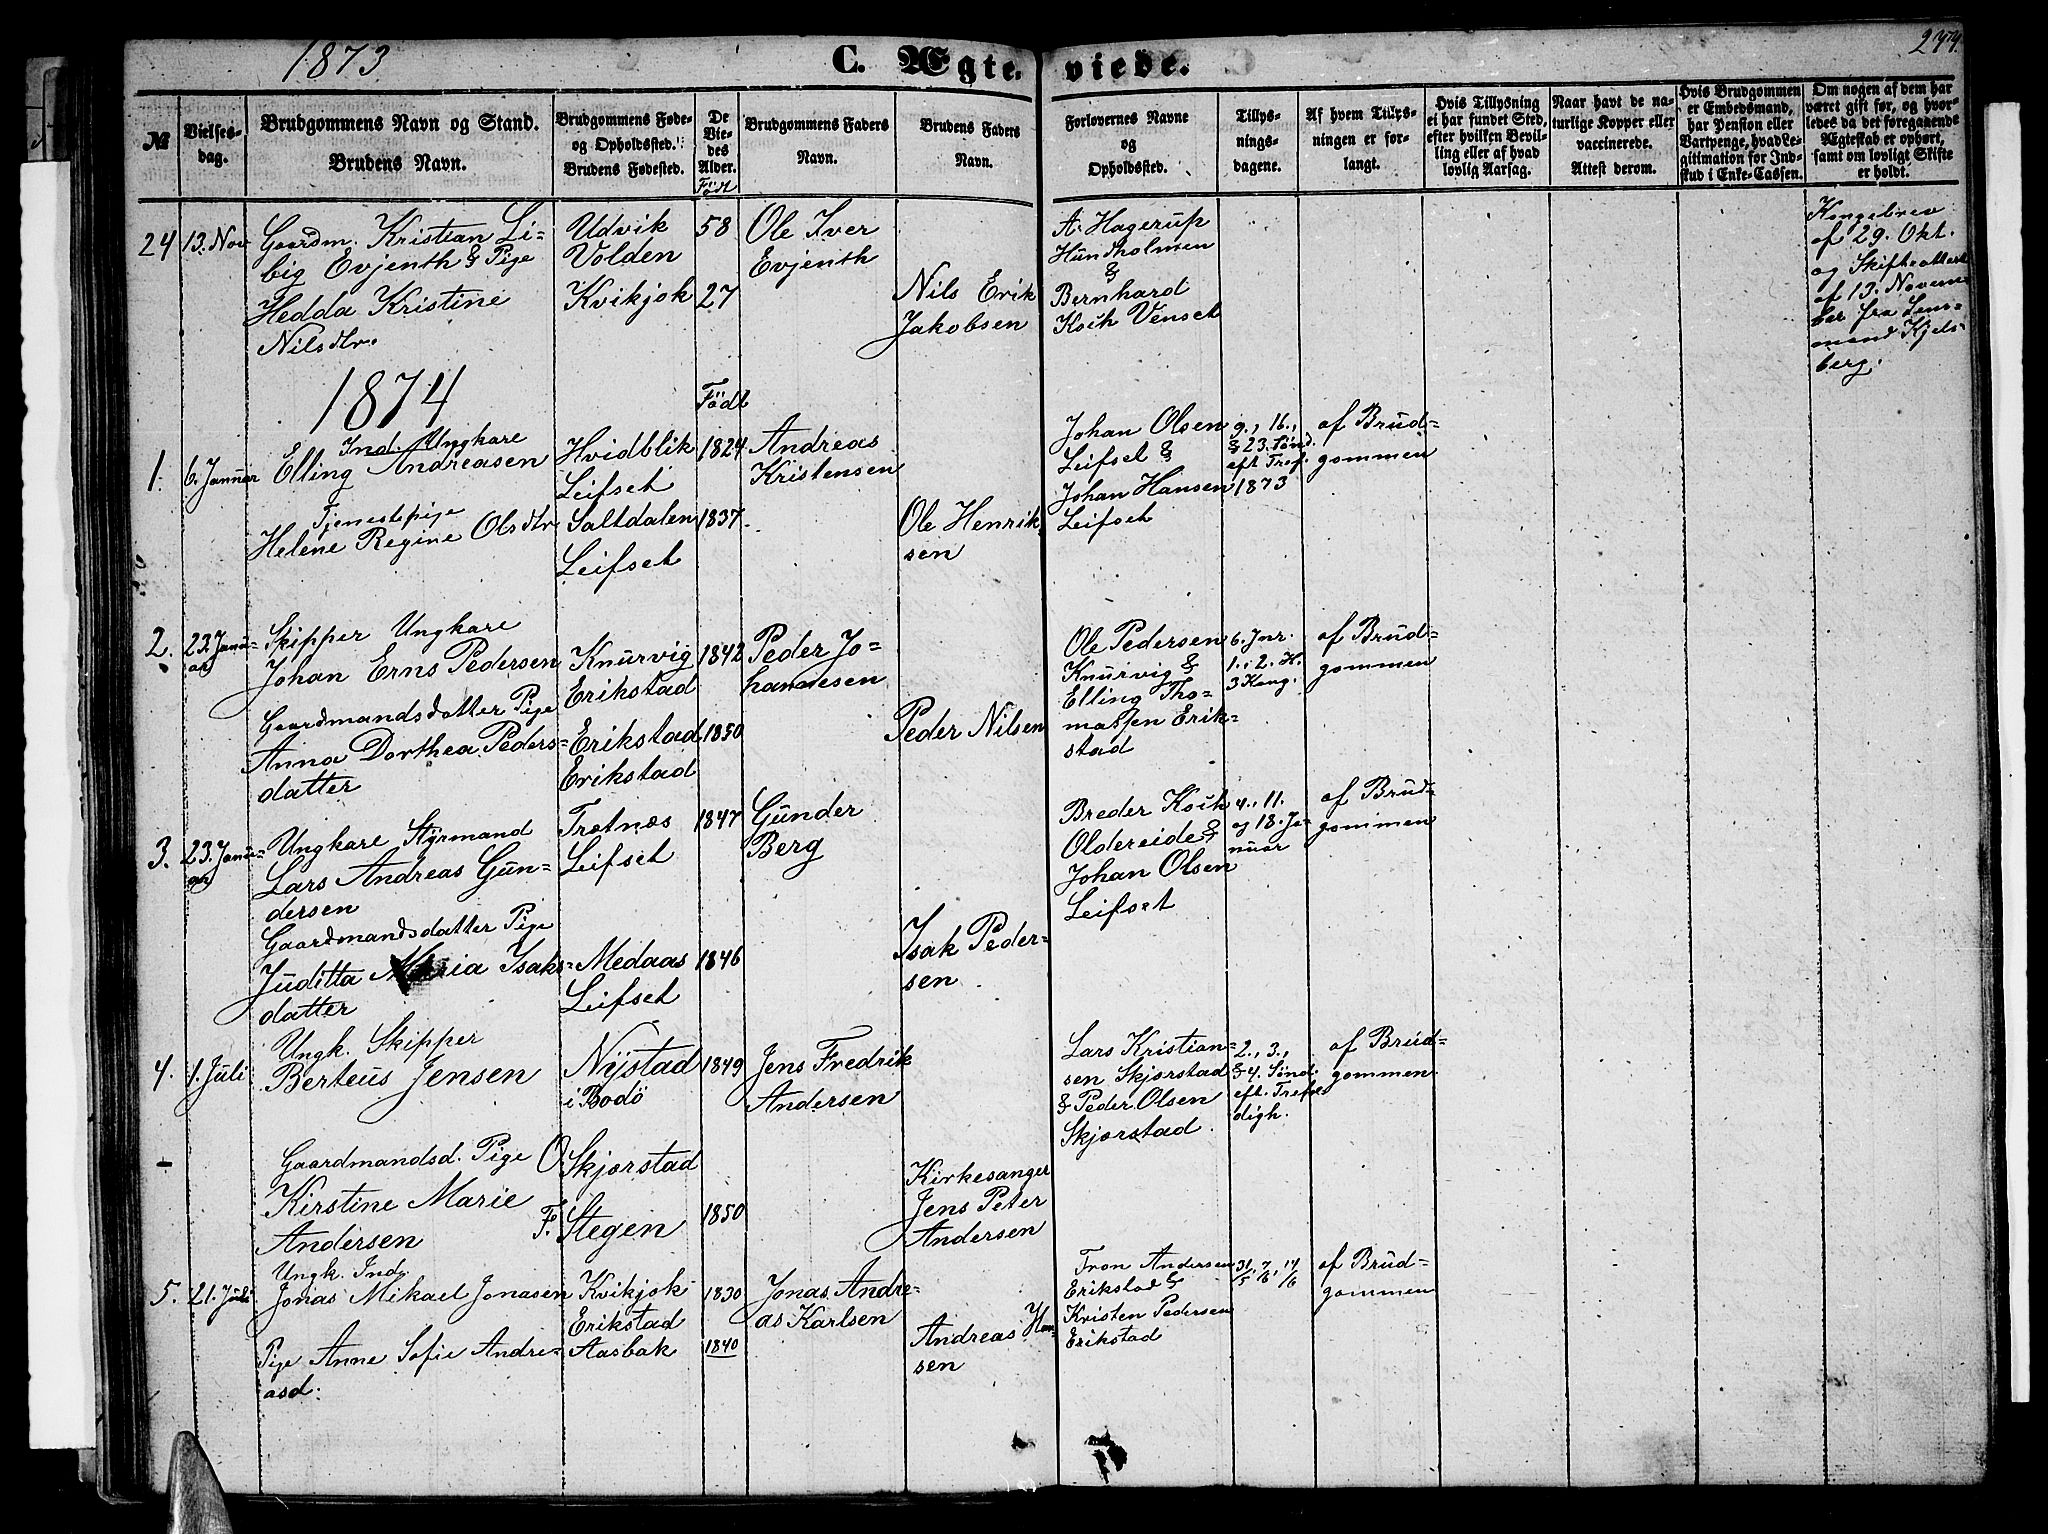 1873
C. Ægteviede.
277
№
Vielses-
dag.
Brudgommens Navn og Stand.
Brudens Navn.
Brudgommens Føde-
og Opholdssted.
Brudens Fødested.
De
Vie-
des
Alder.
Født
Brudgommens Faders
Navn.
Brudens Faders
Navn.
Forlovernes Navne
og
Opholdssted.
Tillys-
nings-
dagene.
Af hvem Tillys-
ningen er for-
langt.
Hvis Tillysning
ei har fundet Sted,
efter hvilken Bevil-
ling eller af hvad
lovlig Aarsag.
Naar havt de na-
turlige Kopper eller
vaccinerede.
Attest derom.
Hvis Brudgommen
er Embedsmand,
har Pension eller
Vartpenge, hvad Le-
gitimation for Ind-
skud i Enke-Cassen.
Om nogen af dem har
været gift før, og hvor-
ledes da det foregaaende
Ægteskab er ophørt,
samt om lovligt Skifte
er holdt.
24
13. Nov
Gaardm. Kristian Li-
big Evjenth & Pige
Hedda Kristine
Nilsdtr.
Udvik
Volden
Kvikjok
58
27
Ole Iver
Evjenth
Nils Erik
Jakobsen
A. Hagerup
Hundholmen
&
Bernhard
Koch Venset
Kongebrev
af 29. Okt.
og Skifteattest
af 13. Novem-
ber fra Lens-
mand Kjels-
berg.
1874
Født
1.
6. Januar
Ind. Ungkare
Elling Andreasen
Tjenestepige
Helene Regine Olsdtr
Hvidblik
Leifset
Saltdalen
Leifset
1824
1837
Andreas
Kristensen
Ole Henrik-
sen
Johan Olsen
Leifset &
Johan Hansen
Leifset
9., 16.,
& 23. Sønd.
eft Tref.
1873
af Brud-
gommen
2.
23. Janu-
ar
Skipper Ungkare
Johan Erns Pedersen
Gaardmandsdatter Pige
Anna Dorthea Peders-
datter
Knurvig
Erikstad
Erikstad
Erikstad
1842
1850
Peder Jo-
hannesen
Peder Nilsen
Ole Pedersen
Knurvig &
Elling Tho-
massen Erik-
stad
6. Jnr.
1. i 2. H.
3 Kong.
af Brud-
gommen
3.
23. Janu-
ar
Ungkare Styrmand
Lars Andreas Gun-
dersen
Gaardmandsdatter Pige
Juditta Maria Isaks-
datter
Tretnæs
Leifset
Medaas
Leifset
1847
1846
Gunder
Berg
Isak Peder-
sen
Breder Koch
Oldereide &
Johan Olsen
Leifset
4., 11.
og 18. Ja-
nuar
af Brud-
gommen
4.
1. Juli
Ungk. Skipper
Berteus Jensen
Gaardmandsd. Pige
Kirstine Marie
Andersen
Nystad
i Bodö
O Skjørstad
F. Stegen
1849
1850
Jens Fredrik
Andersen
Kirkesanger
Jens Peter
Andersen
Lars Kristian-
sen Skjørstad
& Peder Olsen
Skjørstad.
2., 3.,
& 4. Sønd.
eft. Trefol-
digh.
af Brud-
gommen.
5.
21. Juli
Ungk. Ind.
Jonas Mikael Jonasen
Pige Anne Sofie Andre-
asd.
Kvikjok
Erikstad
Aasbak
1830
1840
Jonas Andre-
as Karlsen
Andreas Han-
sen
Tron Andersen
Erikstad &
Kristen Pedersen
Erikstad
31/5, 7/6, 14/6
af Brud-
gommen